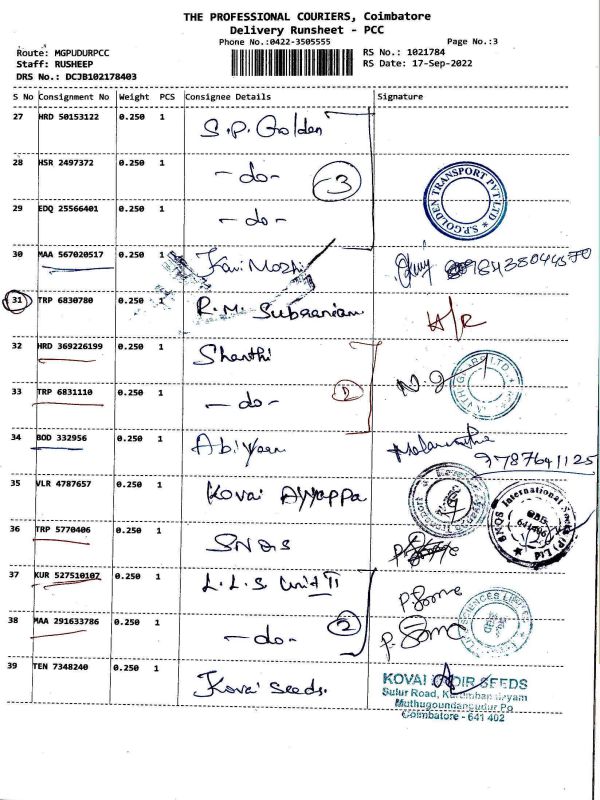 THE PROFESSIONAL COURIERS, Coimbatore
Delivery Runsheet - PCC
Phone No.:0422-3505555 Page No.:3
Route: MGPUDURPCC RS No.: 1021784
Staff: RUSHEEP RS Date: 17-Sep-2022
DRS No.: DCJB102178403
S No Consignment No Weight PCS Consignee Details Signature
27 HRD 50153122 0.250 1 S.P. Golden
28 HSR 2497372 0.250 1 -do- 3
S.P.GOLDEN TRANSPORT PVT.LTD
29 EDQ 25566401 0.250 1 -do-
30 MAA 567020517 0.250 1 Kavi Mozhi
31 TRP 6830780 0.250 1 R.M. Subraniam
32 HRD 369226199 0.250 1 Shanthi
33 TRP 6831110 0.250 1 -do-
34 BOD 332956 0.250 1
9787641125
35 VLR 4787657 0.250 1 Kovai Ayyappa
SNQS International Socks (P) Ltd
36 TRP 5770406 0.250 1 SNQS
37 KUR 527510107 0.250 1 L.L.S Unit II
38 MAA 291633786 0.250 1 -do- 2
39 TEN 7348240 0.250 1 Kovai Seeds.
KOVAI SEEDS
Sulur Road,
Muthugoundanpudur Po
Coimbatore - 641 402